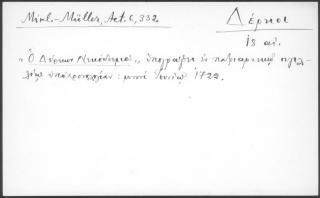 Mikl.-Müller, Act. 6, 332
Δέρκοι
18 αἰ.
"Ὁ Δέρκων Νικόδημος" ὑπογράφει ἐν πατριαρχικῷ
: μηνὶ Ἰουνίῳ 1722.